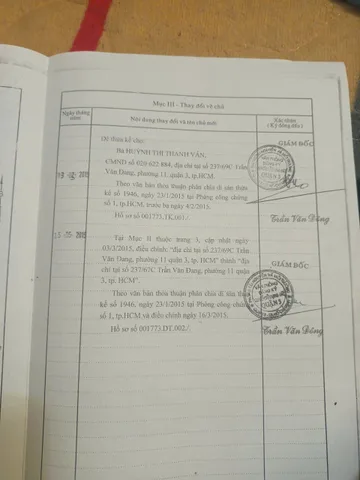 Mục III - Thay đổi về chủ
Ngày tháng năm
Nội dung thay đổi và tên chủ mới
Xác nhận
( Ký đóng dấu)
Để thừa kế cho:
Bà HUỲNH THỊ THANH VÂN,
CMND số 020 622 884, địa chỉ tại số 237/69C Trần
Văn Đang, phường 11, quận 3, tp.HCM.
Theo văn bản thỏa thuận phân chia di sản thừa
kế số 1946, ngày 23/1/2015 tại Phòng công chứng
số 1, tp.HCM, trước bạ ngày 4/2/2015.
Hồ sơ số 001773.TK.001/.
GIÁM ĐỐC
QUẬN 3
Trần Văn Đông
Tại Mục II thuộc trang 3, cập nhật ngày
03/3/2015, điều chỉnh: "địa chỉ tại số 237/69C Trần
Văn Đang, phường 11 quận 3, tp. HCM" thành "địa
chỉ tại số 237/62C Trần Văn Đang, phường 11 quận
3, tp. HCM".
Theo văn bản thỏa thuận phân chia di tản thừa
kế số 1946, ngày 23/1/2015 tại Phòng công chứng
số 1, tp.HCM và điều chỉnh ngày 16/3/2015.
Hồ sơ số 001773.DT.002./.
GIÁM ĐỐC
QUẬN 3
Trần Văn Đông